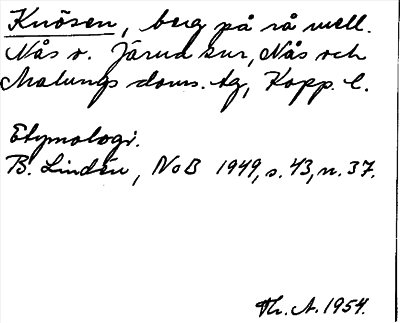 Knösen, berg på rå mell.
Nås o. Järna snr, Nås och
Malungs doms. tg, Kopp. l.
Etymologi.
B. Lindén, NoB 1949, s. 43, n. 37.
Th. A. 1954.